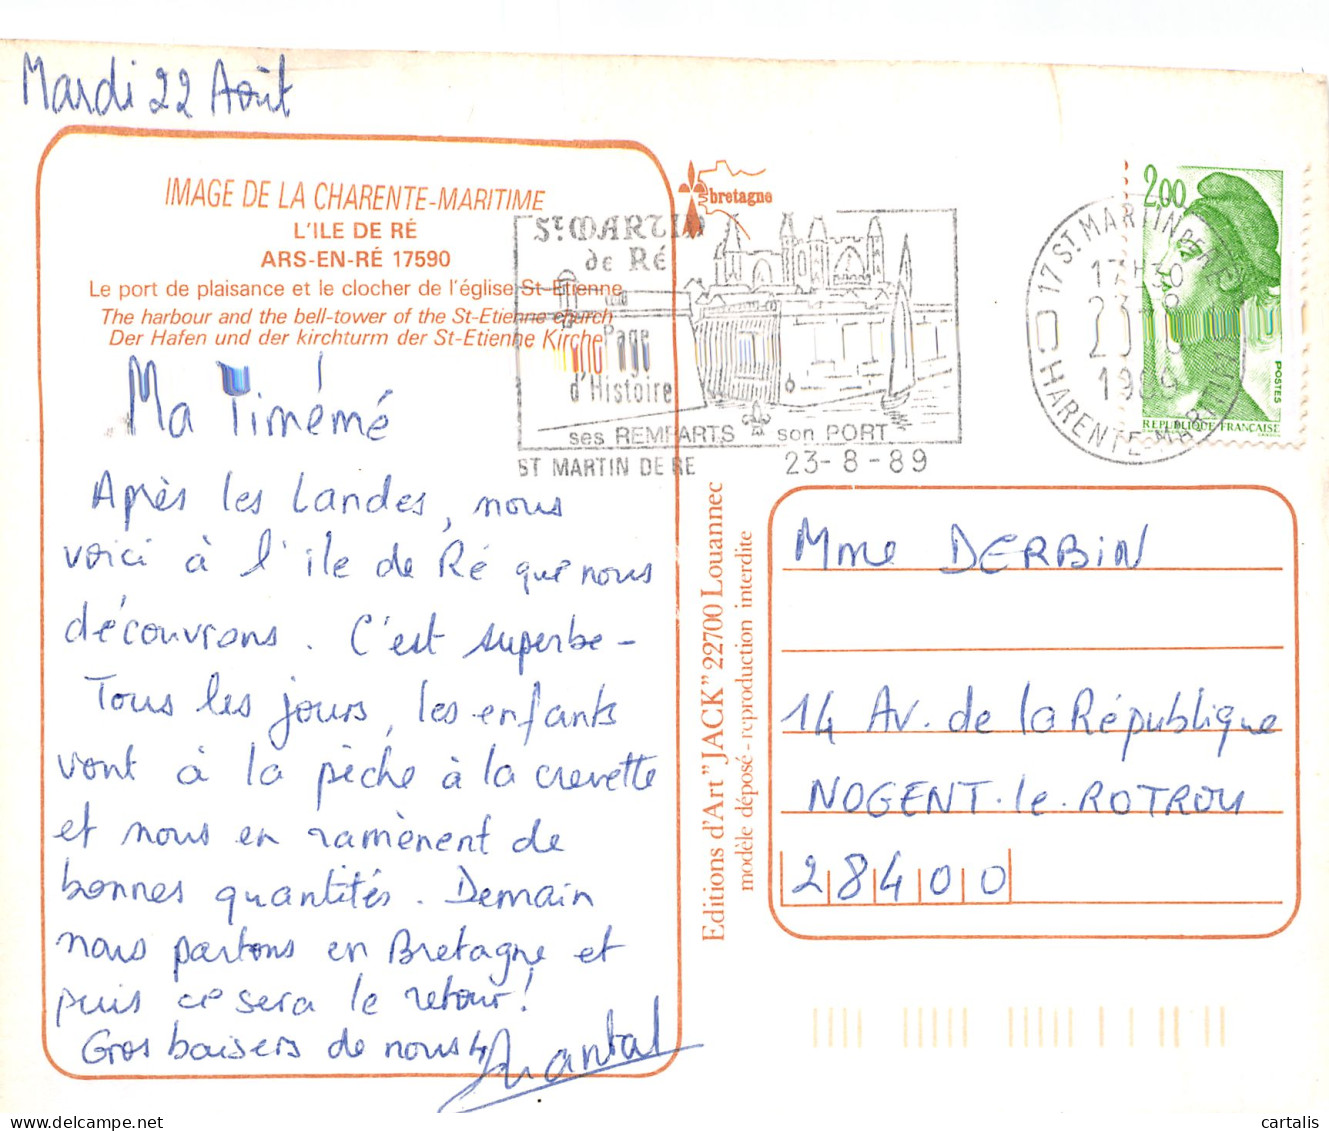 Mardi 22 Août
IMAGE DE LA CHARENTE-MARITIME
L'ILE DE RÉ
ARS-EN-RÉ 17590
Le port de plaisance et le clocher de l'église St-Etienne
The harbour and the bell-tower of the St-Etienne church
Der Hafen und der kirchturm der St-Etienne Kirche
Ma Timémé
Après les Landes, nous
voici à l'ile de Ré que nous
découvrons. C'est superbe -
Tous les jours, les enfants
vont à la pèche à la crevette
et nous en ramènent de
bonnes quantités. Demain
nous partons en Bretagne et
puis ce sera le retour !
Gros baisers de nous 4
Chantal
bretagne
St MARTIN
de RÉ
une Page
d'Histoire
ses REMPARTS son PORT
ST MARTIN DE RE 23-8-89
17 ST. MARTIN DE RE
17H30
23-8
1989
CHARENTE-MARITIME
2,00
POSTES
REPUBLIQUE FRANÇAISE
Editions d'Art "JACK" 22700 Louannec
modèle déposé - reproduction interdite
Mme DERBIN
14 Av. de la République
NOGENT-le-ROTROU
28400
cartalis
www.delcampe.net